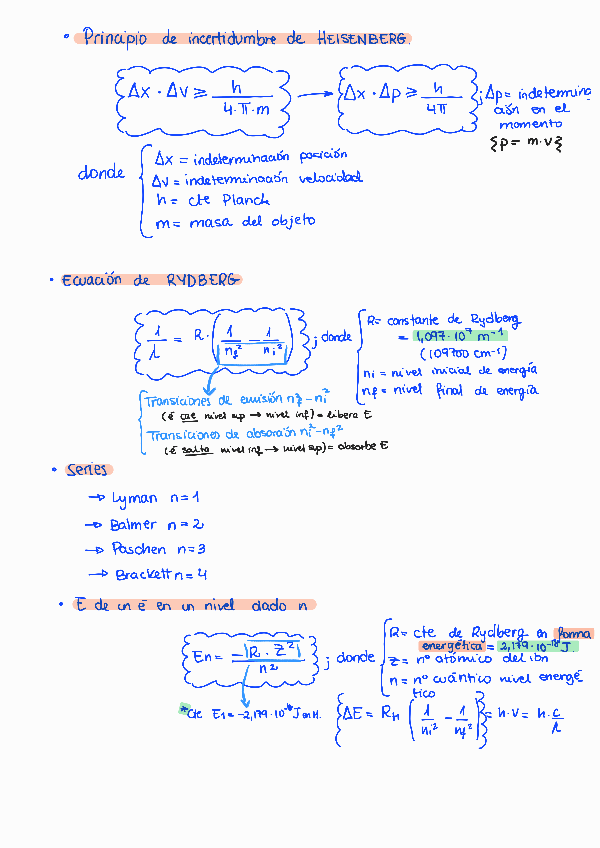 • Principio de incertidumbre de HEISENBERG.
Δx · Δv ≥ h / 4·π·m → Δx · Δp ≥ h / 4π ; Δp = indetermina
ción en el
momento
{p = m·v}
donde
Δx = indeterminación posición
Δv = indeterminación velocidad
h = cte Planck
m = masa del objeto
• Ecuación de RYDBERG
1/λ = R · (1/nf² - 1/ni²) ; donde
R = constante de Rydberg
= 1,097·10⁷ m⁻¹
(109700 cm⁻¹)
ni = nivel inicial de energía
nf = nivel final de energía
Transiciones de emisión nf² - ni²
(é cae nivel sup → nivel inf) = libera E
Transiciones de absorción ni² - nf²
(é salta nivel inf → nivel sup) = absorbe E
• Series
→ Lyman n = 1
→ Balmer n = 2
→ Paschen n = 3
→ Brackett n = 4
• E de un é en un nivel dado n
En = - |R · Z²| / n² ; donde
R = cte de Rydberg en forma
energética = 2,179·10⁻¹⁸ J.
Z = nº atómico del ion
n = nº cuántico nivel energé
tico
*Cte E1 = -2,179·10⁻¹⁸ J en H.
{ΔE = Rh (1/ni² - 1/nf²)} = h·ν = h · c/λ